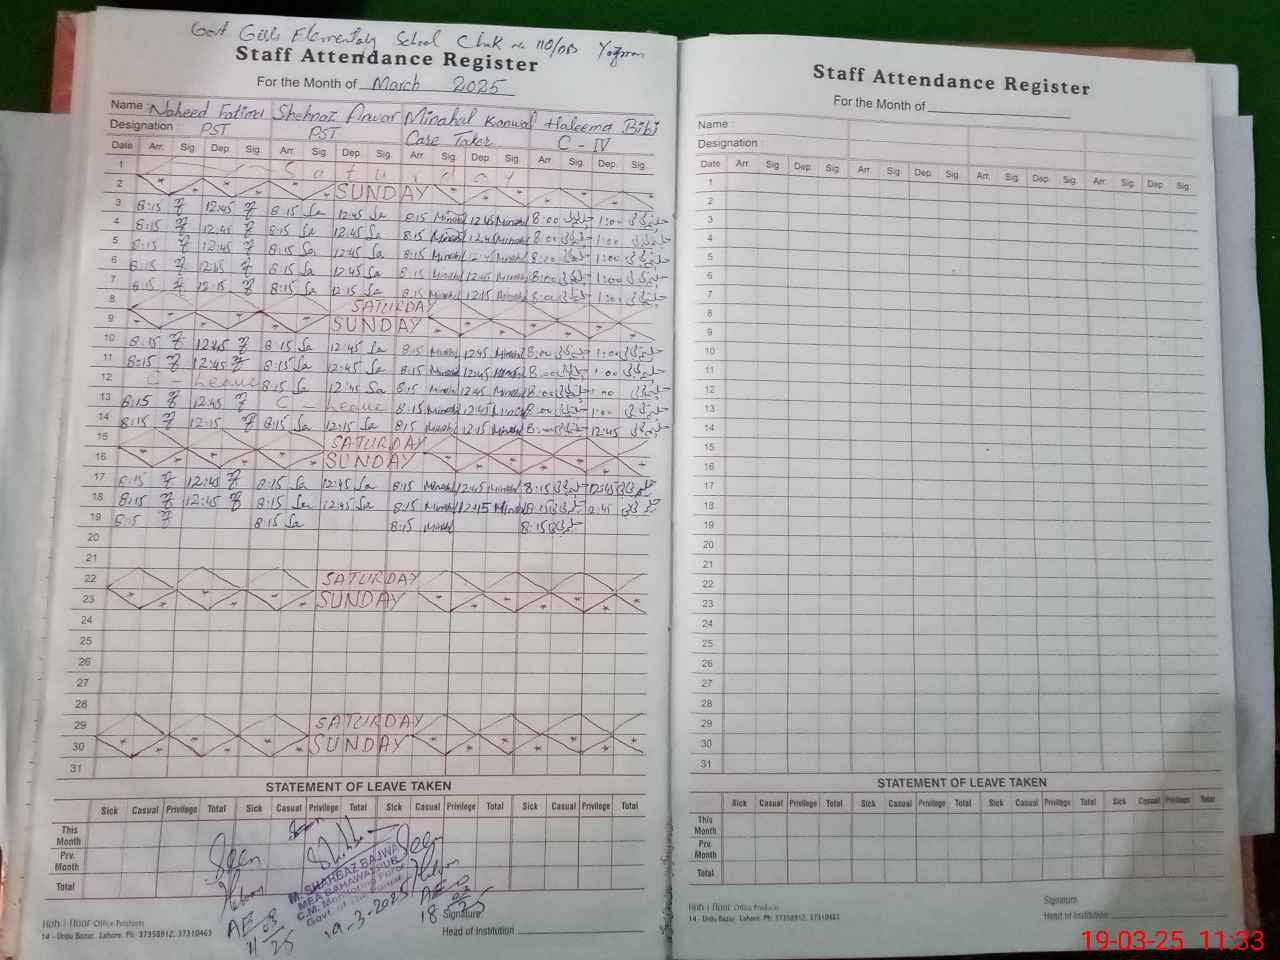 Govt Girls Elementary School Chak no 110/DB Yazman
Staff Attendance Register
For the Month of March 2025
Name : Naheed Fatima Shehnaz Anwar Minahal Kanwal Haleema Bibi
Designation : PST PST Care Taker C - IV
Date Arr. Sig. Dep Sig. Arr. Sig. Dep Sig. Arr. Sig. Dep Sig. Arr. Sig. Dep Sig.
1 Saturday
2 SUNDAY
3 8:15 12:45 8:15 Sa 12:45 Sa 8:15 Minahl 12:45 Minahl 8:00 1:00
4 8:15 12:45 8:15 Sa 12:45 Sa 8:15 Minahl 12:45 Minahl 8:00 1:00
5 8:15 12:45 8:15 Sa 12:45 Sa 8:15 Minahl 12:45 Minahl 8:00 1:00
6 8:15 12:45 8:15 Sa 12:45 Sa 8:15 Minahl 12:45 Minahl 8:00 1:00
7 8:15 12:15 8:15 Sa 12:15 Sa 8:15 Minahl 12:15 Minahl 8:00 1:00
8 SATURDAY
9 SUNDAY
10 8:15 12:45 8:15 Sa 12:45 Sa 8:15 Minahl 12:45 Minahl 8:00 1:00
11 8:15 12:45 8:15 Sa 12:45 Sa 8:15 Minahl 12:45 Minahl 8:00 1:00
12 C - Leave 8:15 Sa 12:45 Sa 8:15 Minahl 12:45 Minahl 8:00 1:00
13 8:15 12:45 C - Leave 8:15 Minahl 12:45 Minahl 8:00 1:00
14 8:15 12:15 8:15 Sa 12:15 Sa 8:15 Minahl 12:15 Minahl 8:00 12:45
15 SATURDAY
16 SUNDAY
17 8:15 12:45 8:15 Sa 12:45 Sa 8:15 Minahl 12:45 Minahl 8:15 12:45
18 8:15 12:45 8:15 Sa 12:45 Sa 8:15 Minahl 12:15 Minahl 8:15 12:45
19 8:15 8:15 Sa 8:15 Minahl 8:15
20
21
22 SATURDAY
23 SUNDAY
24
25
26
27
28
29 SATURDAY
30 SUNDAY
31
STATEMENT OF LEAVE TAKEN
Sick Casual Privilege Total Sick Casual Privilege Total Sick Casual Privilege Total Sick Casual Privilege Total
This Month
Prv. Month
Total
Seen Seen
M. SHAHBAZ BAJWA
MEA BAHAWALPUR
C.M. Monitoring Force
Govt. of the Punjab
AEO AEO
11 03 25 19-3-2025 18 03 25
Signature
Head of Institution
Hon-i-floor Office Products
14 - Urdu Bazar, Lahore. Ph: 37358912, 37310463
Staff Attendance Register
For the Month of
Name :
Designation :
Date Arr. Sig. Dep Sig. Arr. Sig. Dep Sig. Arr. Sig. Dep Sig. Arr. Sig. Dep Sig.
1
2
3
4
5
6
7
8
9
10
11
12
13
14
15
16
17
18
19
20
21
22
23
24
25
26
27
28
29
30
31
STATEMENT OF LEAVE TAKEN
Sick Casual Privilege Total Sick Casual Privilege Total Sick Casual Privilege Total Sick Casual Privilege Total
This Month
Prv. Month
Total
Signature
Head of Institution
Hon-i-floor Office Products
14 - Urdu Bazar, Lahore. Ph: 37358912, 37310463
19-03-25 11:33